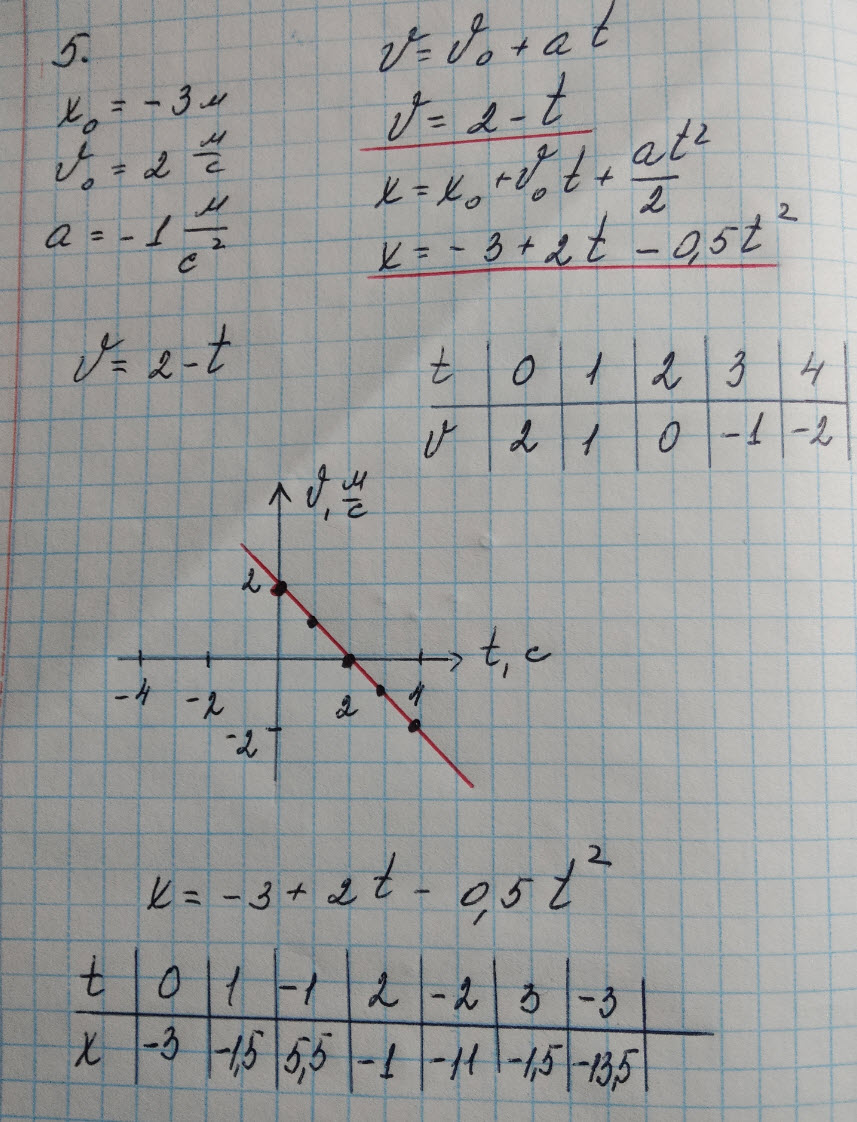 5.
x₀ = -3 м
v₀ = 2 м/с
a = -1 м/с²
v = v₀ + a t
v = 2 - t
x = x₀ + v₀ t + at²/2
x = -3 + 2t - 0,5t²
v = 2 - t
t | 0 | 1 | 2 | 3 | 4
v | 2 | 1 | 0 | -1 | -2
v, м/с
2
t, c
-4 -2 2 4
-2
x = -3 + 2t - 0,5t²
t | 0 | 1 | -1 | 2 | -2 | 3 | -3
x | -3 | -1,5 | 5,5 | -1 | -11 | -1,5 | -13,5